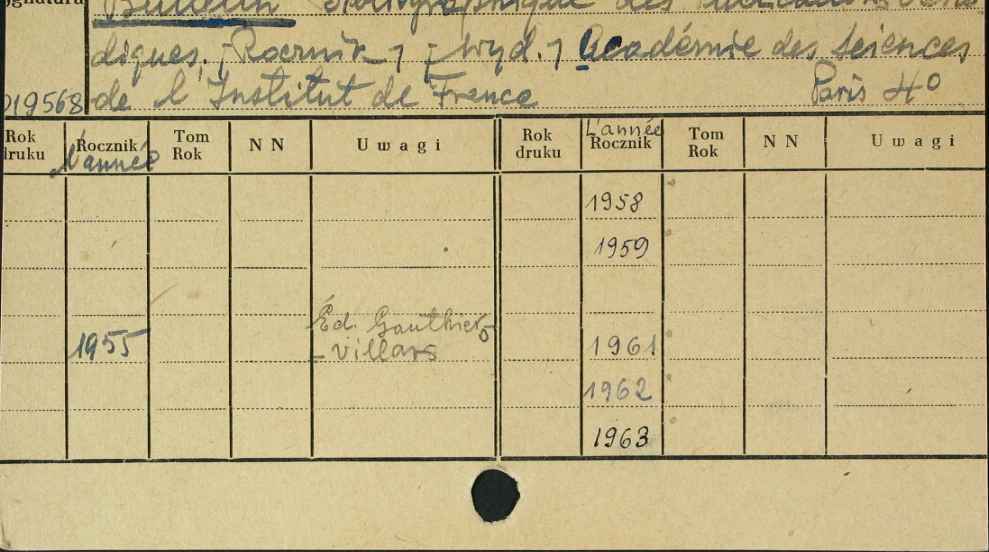 Bulletin bibliographique des
diques. [Rocznik] [Wyd.] Académie des sciences
019568 de l'Institut de France Paris 4º
Rok druku Rocznik Tom Rok NN Uwagi Rok druku Rocznik Tom Rok NN Uwagi
L'année L'année
1958
1959
Éd. Gauthiers
1955 - Villars 1961
1962
1963